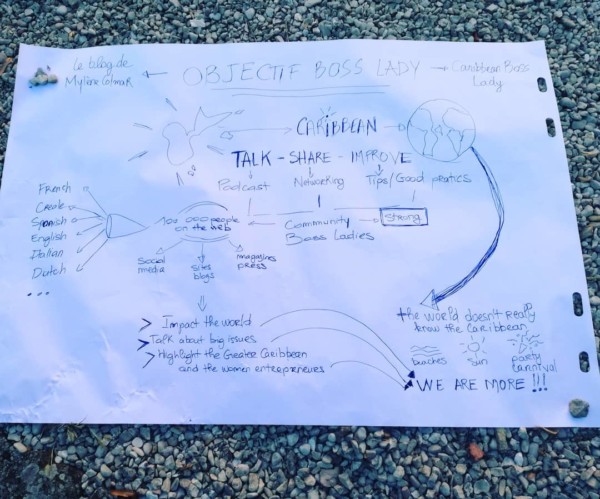 Le blog de
Mylène Colmar
OBJECTIF BOSS LADY
Caribbean Boss
Lady
CARIBBEAN
TALK - SHARE - IMPROVE
Podcast
Networking
Tips/Good pratics
French
Creole
Spanish
English
Italian
Dutch
...
100 000 people
on the web
Community
Boss Ladies
strong
Social
media
Sites
blogs
magazines
press
> Impact the world
> Talk about big issues
> Highlight the Greater Caribbean
and the women entrepreneurs
the world doesn't really
know the Caribbean
beaches
sun
party
carnival
WE ARE MORE !!!